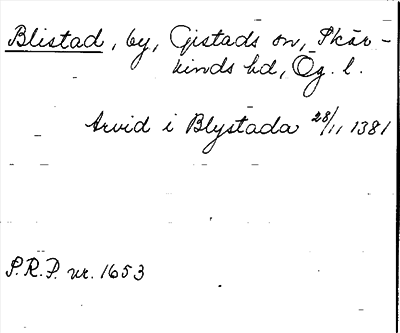 Blistad, by, Gistads sn, Skär-
kinds hd, Ög. l.
Arvid i Blystada 28/11 1381
P.R.P. nr. 1653